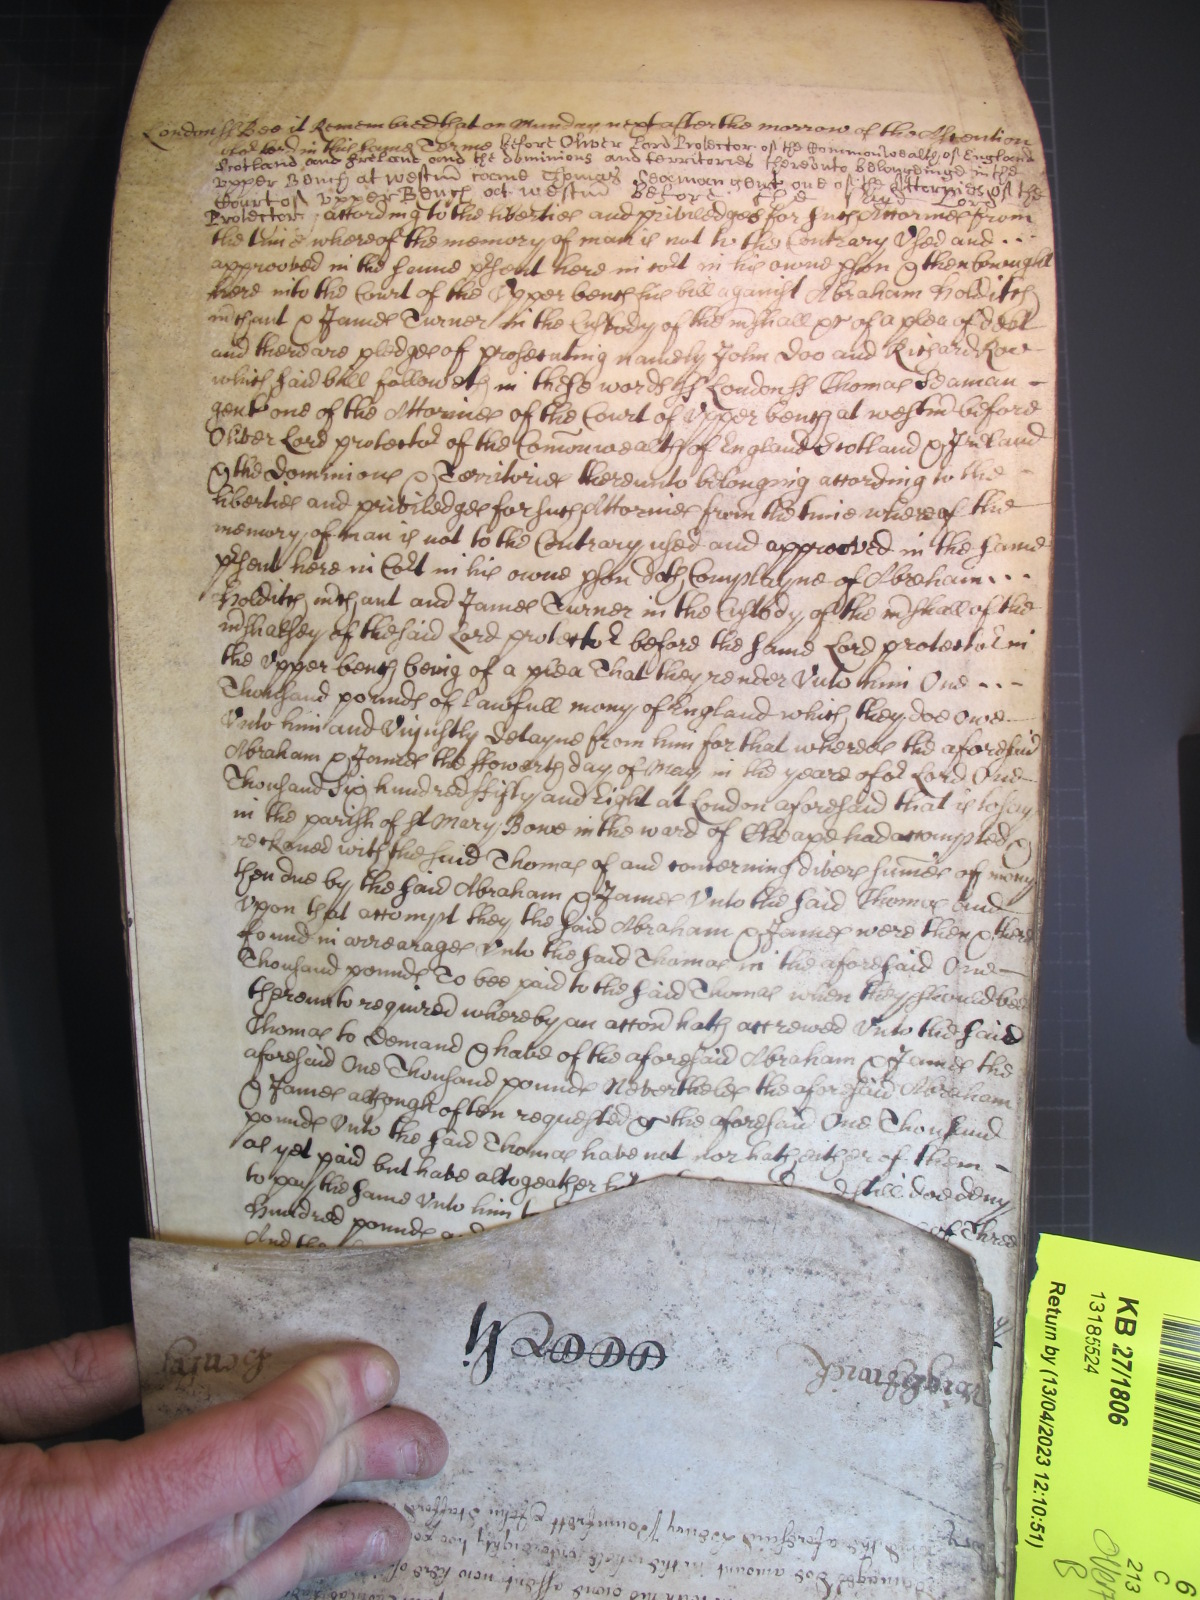 London ss Bee it Remembred that on Munday next after the morrow of the Ascention
of o^r Lord in this same Terme before Oliver Lord Protector of the Commonwealth of England
Scotland and Ireland and the dominions and territories thereunto belongeinge in the
Upper Bench at westm came Thomas Seaman gent one of the Attornies of the
Court of Upper Bench att westm before the said Lord
Protector according to the liberties and priviledges for such Attornies from
the time whereof the memory of man is not to the Contrary Used and . . .
approoved in the same p^rsent here in Co^rt in his owne pson & then brought
here into the Court of the Upper bench his bill against Abraham Holditch
mchant & James Turner in the Custody of the mshall &c of a plea of debt
and there are pledges of prosecuting namely John Doo and Richard Roo
which said bill followeth in these words ss London ss Thomas Seaman -
gent one of the Attornies of the Court of Upper bench at westm before
Oliver Lord protecto^r of the Comonwealth of England Scotland & Ireland
& the Dominions & Territories thereunto belonging according to the -
liberties and priviledges for such Attornies from the time whereof the
memory of man is not to the Contrary used and approoved in the same
p^rsent here in Co^rt in his owne pson doth Complayne of Abraham . . .
Holditch mchant and James Turner in the Custody of the mshall of the
mshalsey of the said Lord protecto^r before the same Lord protecto^r in
the Upper bench being of a plea That they render Unto him One - - -
Thousand pounds of lawfull mony of England which they doe owe
Unto him and Unjustly detayne from him for that whereas the aforesaid
Abraham & James the ffowerth day of May in the yeare of o^r Lord One
Thousand Six hundred ffifty and Eight at London aforesaid that is to say
in the parish of St Mary Bowe in the ward of Cheape had accompted &
reckoned with the said Thomas of and concerning divers summes of mony
then due by the said Abraham & James Unto the said Thomas and
Upon that accompt they the said Abraham & James were then & there
found in arrearages Unto the said Thomas in the aforesaid One
Thousand pounds To bee paid to the said Thomas when they should bee
thereunto required whereby an accon hath accrewed Unto the said
Thomas to Demand & have of the aforesaid Abraham & James the
aforesaid One Thousand pounds Neverthelesse the aforesaid Abraham
& James although often requested &c the aforesaid One Thousand
pounds Unto the said Thomas have not nor hath either of them -
as yet paid but have altogeather still doe deny
to pay the same Unto him
Hundred pounds of Three
And
KB 27/1806
13185524
Return by (13/04/2023 12:10:51)
6
C
213